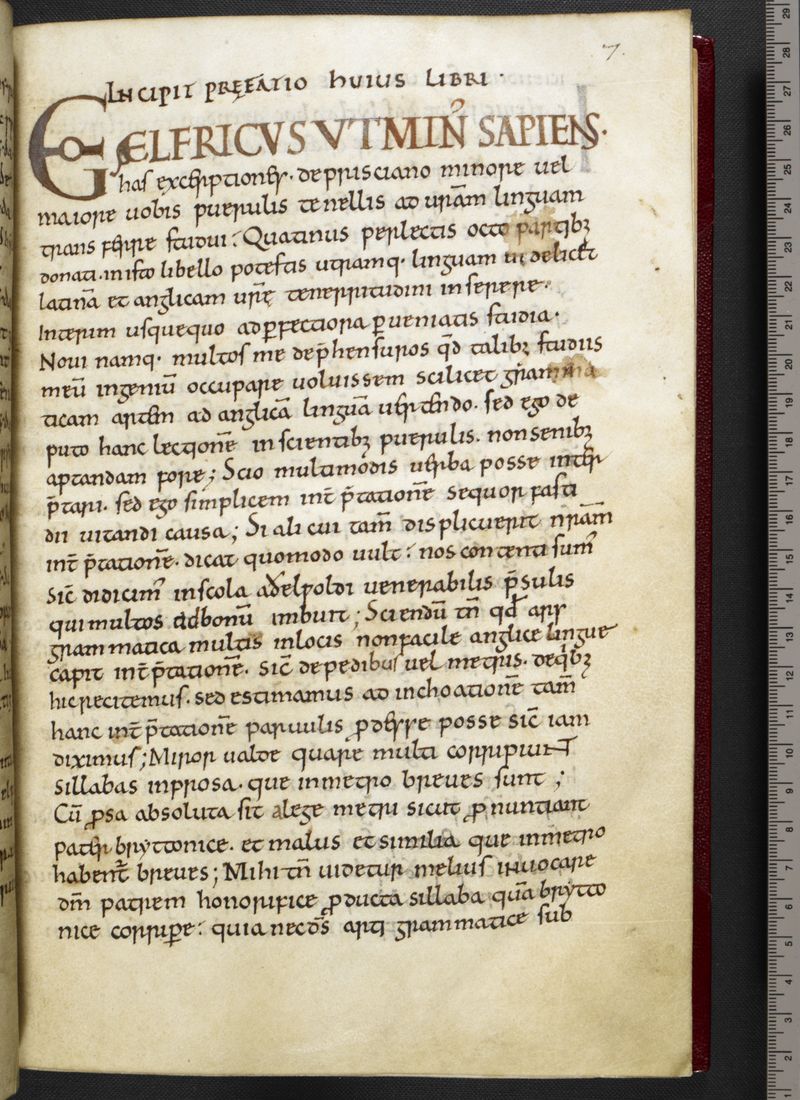 7.
INCIPIT PRĘFATIO HUIUS LIBRI ·
EGO ÆLFRICVS VT MIN̄ SAPIENS·
has excerptiones· de prisciano minore uel
maiore uobis puerulis tenellis ad urām linguam
transferre studui: Quatinus perlectis octo partibꝫ
donati· in isto libello potestis utramq· linguam uidelicet
latinā et anglicam urę̄ teneritudini inserere·
Interim usquequo ad ꝑfectiora ꝑueniatis studia·
Noui namq· multos me dep̄hensuros qđ talibꝫ studiis
meū ingeniū occupare uoluissem scilicet gramma
ticam artem ad anglicā linguā uertendo· sed ego de
puto hanc lectionē inscientibꝫ puerulis· non senibꝫ
aptandam fore; Scio multimodis uerba posse inter
p̄tari· sed ego simplicem int̄p̄tationē sequor fasti
dii uitandi causa; Si alicui tam̄ displicuerit nrām
int̄p̄tationē· dicat quomodo uult: nos contenti sum̄
sic̄ didicim̄ in scola aðelpoldi uenerabilis p̄sulis
qui multos ad bonū imbuit; Sciendū tn̄ qđ ars
grammatica multis in locis non facile anglice lingue
capit int̄p̄tationē· sic̄ de pedibus uel metris· de qibꝫ
hic reticemus· sed estimamus ad inchoationē tam̄
hanc int̄p̄tationē paruulis ꝓdesse posse sic̄ iam
diximus; Miror ualde quare multi corripiunt
sillabas in prosa· que in metro breues sunt;
Cū ꝓsa absoluta sit a lege metri sicut ꝓnuntiant
pater bryttonice· et malus et similia que in metro
habent̄ breues; Mihi tn̄ uidetur melius inuocare
dm̄ patrem honorifice ꝓducta sillaba quā brytto
nice corripe: quia nec ds̄ arti grammatice sub